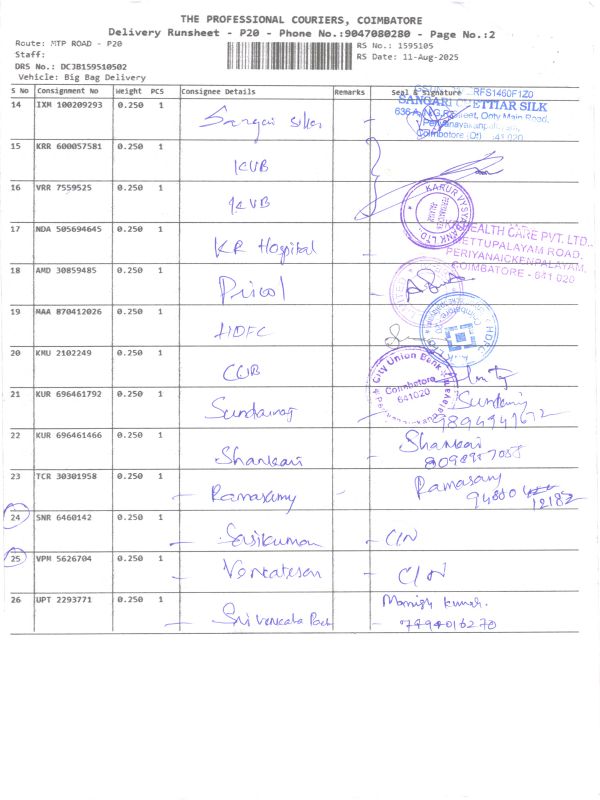 THE PROFESSIONAL COURIERS, COIMBATORE
Delivery Runsheet - P20 - Phone No.:9047080280 - Page No.:2
Route: MTP ROAD - P20
RS No.: 1595105
Staff:
RS Date: 11-Aug-2025
DRS No.: DCJB159510502
Vehicle: Big Bag Delivery
S No Consignment No Weight PCS Consignee Details Remarks Seal & Signature
14 IXM 100209293 0.250 1
RFS1460F1Z0
SANGARI CHETTIAR SILK
Ooty Main Road,
Coimbatore (Dt) 641 020
15 KRR 600057581 0.250 1 KVB
16 VRR 7559525 0.250 1 KVB
KARUR VYSYA BANK LTD
17 NDA 505694645 0.250 1 KR Hospital
HEALTH CARE PVT. LTD.,
METTUPALAYAM ROAD,
PERIYANAICKENPALAYAM,
COIMBATORE - 641 020
18 AMD 30859485 0.250 1 Pricol
LIMITED
19 MAA 870412026 0.250 1 HDFC
HDFC
20 KMU 2102249 0.250 1 CUB
City Union Bank
Coimbatore
641020
21 KUR 696461792 0.250 1
22 KUR 696461466 0.250 1 Shankari Shankari
23 TCR 30301958 0.250 1 - Ramasamy - Ramasamy
12182
24 SNR 6460142 0.250 1 - Sasikumar - C/N
25 VPM 5626704 0.250 1 - Venkatesan - C/N
26 UPT 2293771 0.250 1 - Sri Venkata Manish kumar.
- 7494016270